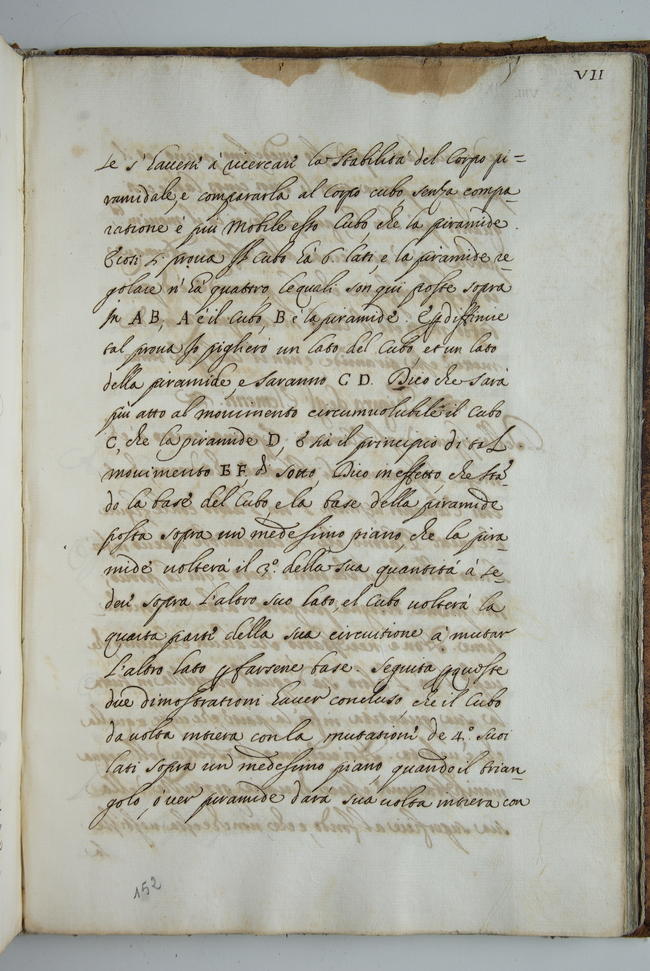 VII
Se s'hauerà à ricercare la stabilità del Corpo pi=
ramidale, e compararla al Corpo cubo, senza compa=
ratione è più mobile esso Cubo, che la piramide.
E così si proua il Cubo hà 6. lati, e la piramide re=
golare n'hà quattro, le quali son qui poste sopra
in AB, A è il Cubo, B è la piramide. E p diffinire
tal proua io piglierò un lato del Cubo, et un lato
della piramide e saranno C D. Dico che sarà
più atto al mouimento circumuolubile il Cubo
C, che la piramide D, e sia il principio di tal
mouimento E F di sotto, Dico in effetto che stan=
do la base del Cubo, e la base della piramide
posta sopra un medesimo piano, che la pira=
mide uolterà il 3º. della sua quantità à se=
dere sopra l'altro suo lato, el Cubo uolterà la
quarta parte della sua circuitione à mutar
l'altro lato p farsene base. Seguita p queste
due dimostrationi hauer concluso, che il Cubo
da uolta intiera con la mutatione de 4º. suoi
lati sopra un medesimo piano quando il trian=
golo, ò uer piramide darà sua uolta intiera con
152